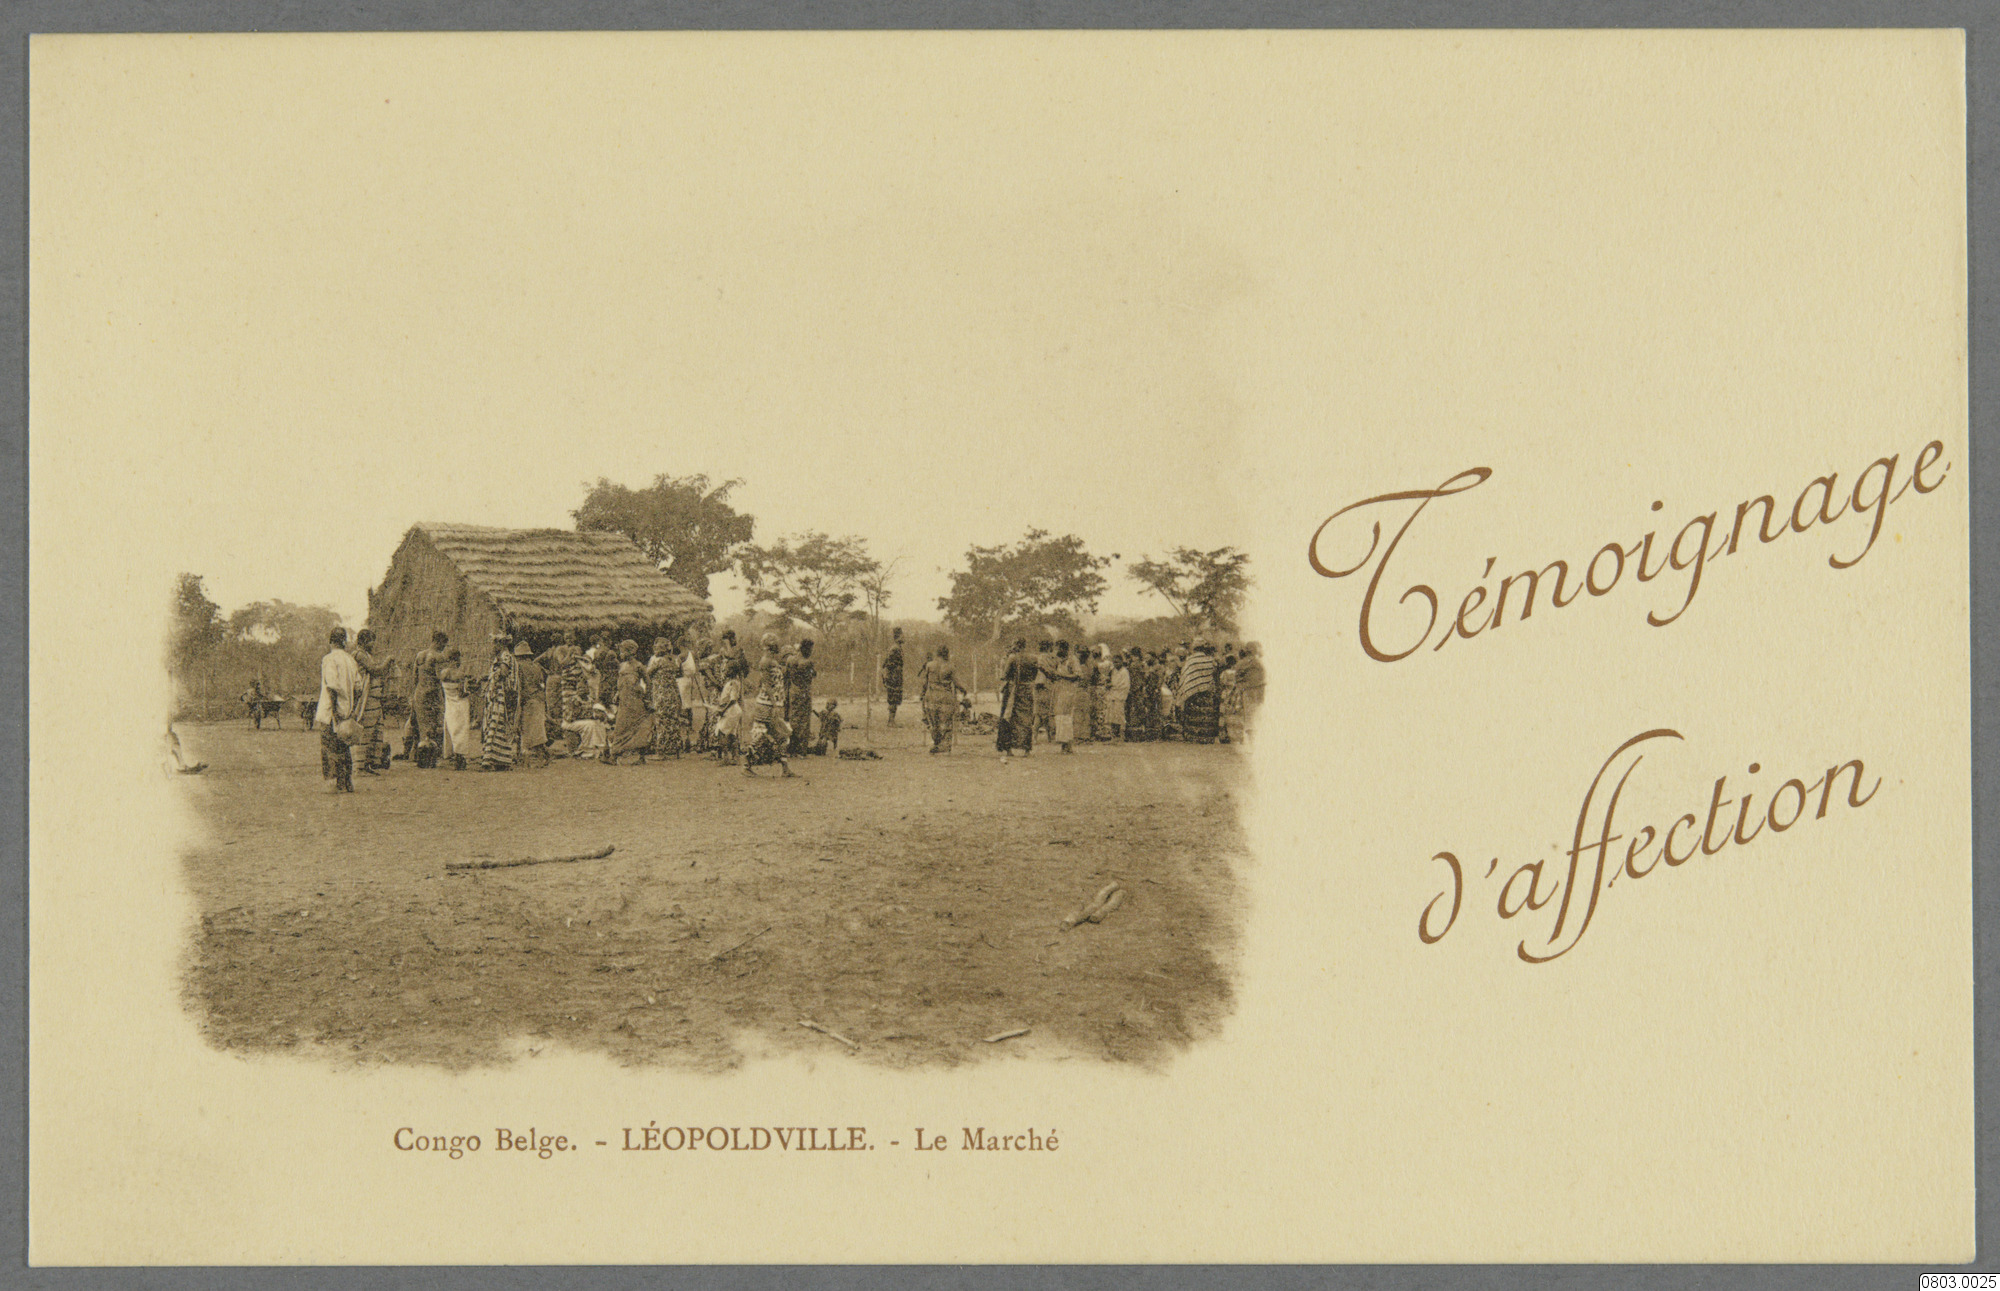 Témoignage
d'affection
Congo Belge. - LÉOPOLDVILLE. - Le Marché
0803.0025